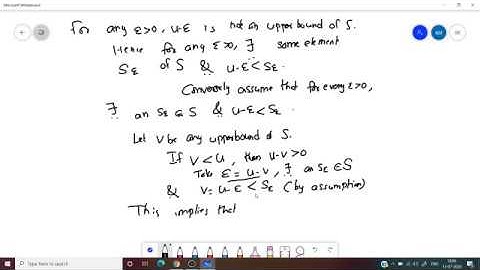 Microsoft Whiteboard
For any ε>0, u-ε is not an upperbound of S.
Hence for any ε>0, ∃ some element
Sε of S & u-ε<Sε.
Conversly assume that for every ε>0,
∃ an Sε ∈ S & u-ε<Sε.
Let v be any upperbound of S.
If v<u, then u-v>0
Take ε=u-v, ∃ an Sε∈S
& v=u-ε<Sε (by assumption)
This implies that
Type here to search
ENG